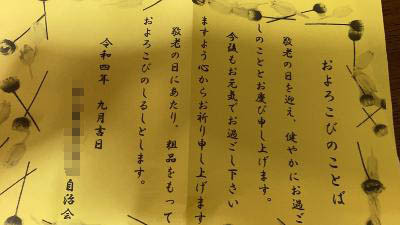 およろこびのことば
敬老の日を迎え、健やかにお過ご
しのこととお慶び申し上げます。
今後もお元気でお過ごし下さい
ますよう心からお祈り申し上げます
敬老の日にあたり、粗品をもって
およろこびのしるしとします。
令和四年　九月吉日
自治会